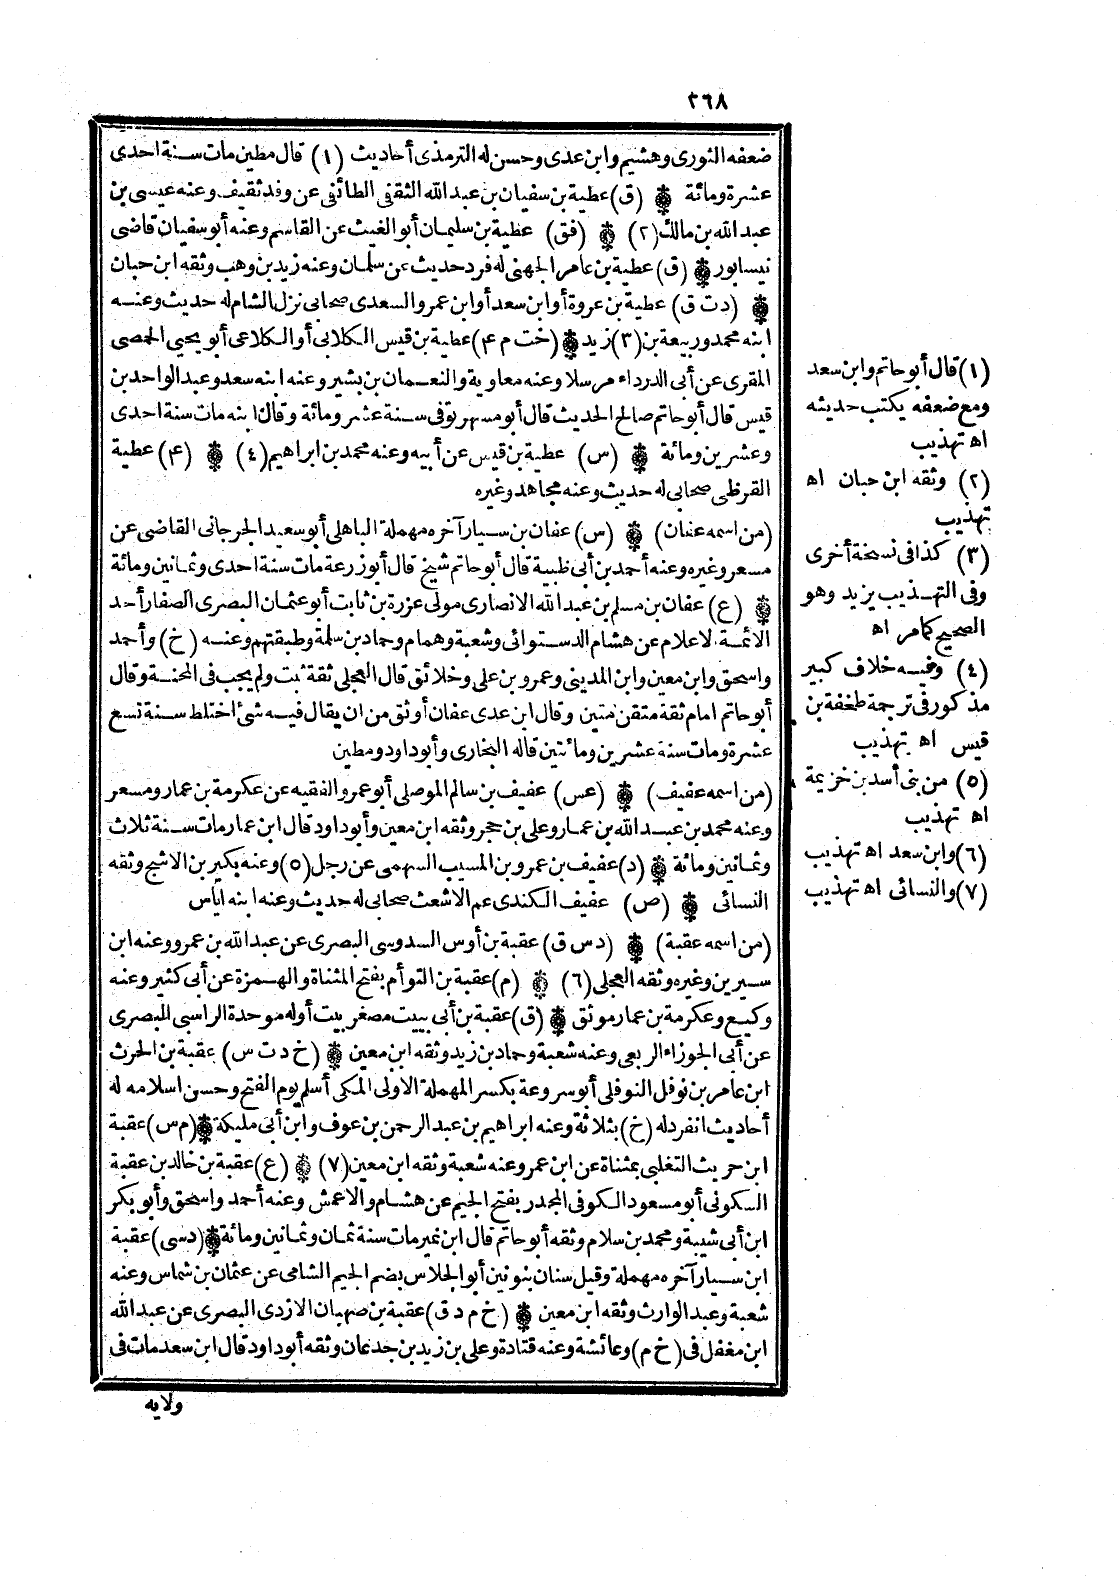 ٢٦٨
ضعفه الثورى وهشيم وابن عدى وحسن له الترمذى أحاديث (١) قال مطين مات سنة احدى
عشرة ومائة ۞ (ق) عطية بن سفيان بن عبد الله الثقفى الطائفى عن وفد ثقيف وعنه عيسى بن
عبد الله بن مالك (٢) ۞ (فق) عطية بن سليمان أبو الغيث عن القاسم وعنه أبو سفيان قاضى
نيسابور ۞ (ق) عطية بن عامر الجهنى له فرد حديث عن سلمان وعنه زيد بن وهب وثقه ابن حبان
۞ (د ت ق) عطية بن عروة أو ابن سعد أو ابن عمرو السعدى صحابى نزل الشام له حديث وعنه
ابنه محمد وربيعة بن (٣) زيد ۞ (خت م ٤) عطية بن قيس الكلابى أو الكلاعى أبو يحيى الحمصى
المقرى عن أبى الدرداء مرسلا وعنه معاوية والنعمان بن بشير وعنه ابنه سعد وعبد الواحد بن
قيس قال أبو حاتم صالح الحديث قال أبو مسهر توفى سنة عشر ومائة وقال ابنه مات سنة احدى
وعشرين ومائة ۞ (س) عطية بن قيس عن أبيه وعنه محمد بن ابراهيم (٤) ۞ (٤) عطية
القرظى صحابى له حديث وعنه مجاهد وغيره
(من اسمه عفان) ۞ (س) عفان بن سيار آخره مهملة الباهلى أبو سعيد الجرجانى القاضى عن
مسعر وغيره وعنه أحمد بن أبى طيبة قال أبو حاتم شيخ قال أبو زرعة مات سنة احدى وثمانين ومائة
۞ (ع) عفان بن مسلم بن عبد الله الانصارى مولى عزرة بن ثابت أبو عثمان البصرى الصفار أحد
الائمة الاعلام عن هشام الدستوائى وشعبة وهمام وحماد بن سلمة وطبقتهم وعنه (خ) وأحمد
واسحق وابن معين وابن المدينى وعمرو بن على وخلائق قال العجلى ثقة ثبت ولم يجب فى المحنة وقال
أبو حاتم امام ثقة متقن متين وقال ابن عدى عفان أوثق من ان يقال فيه شئ اختلط سنة تسع
عشرة ومات سنة عشرين ومائتين قاله البخارى وأبو داود ومطين
(من اسمه عفيف) ۞ (عس) عفيف بن سالم الموصلى أبو عمرو الفقيه عن عكرمة بن عمار ومسعر
وعنه محمد بن عبد الله بن عمار وعلى بن حجر وثقه ابن معين وأبو داود قال ابن عمار مات سنة ثلاث
وثمانين ومائة ۞ (د) عفيف بن عمرو بن المسيب السهمى عن رجل (٥) وعنه بكير بن الاشج وثقه
النسائى ۞ (ص) عفيف الكندى عم الاشعث صحابى له حديث وعنه ابنه اياس
(من اسمه عقبة) ۞ (د س ق) عقبة بن أوس السدوسى البصرى عن عبد الله بن عمرو وعنه ابن
سيرين وغيره وثقه العجلى (٦) ۞ (م) عقبة بن التوأم بفتح المثناة والهمزة عن أبى كثير وعنه
وكيع وعكرمة بن عمار موثق ۞ (ق) عقبة بن أبى بييت مصغر بيت أوله موحدة الراسبى البصرى
عن أبى الجوزاء الربعى وعنه شعبة وحماد بن زيد وثقه ابن معين ۞ (خ د ت س) عقبة بن الحرث
ابن عامر بن نوفل النوفلى أبو سروعة بكسر المهملة الاولى المكى أسلم يوم الفتح وحسن اسلامه له
أحاديث انفرد له (خ) بثلاثة وعنه ابراهيم بن عبد الرحمن بن عوف وابن أبى مليكة ۞ (م س) عقبة
ابن حريث التغلبى بمثناة عن ابن عمر وعنه شعبة وثقه ابن معين (٧) ۞ (ع) عقبة بن خالد بن عقبة
السكونى أبو مسعود الكوفى المجدر بفتح الجيم عن هشام والاعمش وعنه أحمد واسحق وأبو بكر
ابن أبى شيبة ومحمد بن سلام وثقه أبو حاتم قال ابن نمير مات سنة ثمان وثمانين ومائة ۞ (د سى) عقبة
ابن سيار آخره مهملة وقيل سنان بنونين أبو الجلاس بضم الجيم الشامى عن عثمان بن شماس وعنه
شعبة وعبد الوارث وثقه ابن معين ۞ (خ م د ق) عقبة بن صهبان الازدى البصرى عن عبد الله
ابن مغفل فى (خ م) وعائشة وعنه قتادة وعلى بن زيد بن جدعان وثقه أبو داود قال ابن سعد مات فى
ولايه
(١) قال أبو حاتم وابن سعد
ومع ضعفه يكتب حديثه
اه تهذيب
(٢) وثقه ابن حبان اه
تهذيب
(٣) كذا فى نسخة أخرى
وفى التهذيب يزيد وهو
الصحيح كما مر اه
(٤) وفيه خلاف كبير
مذكور فى ترجمة طخفة بن
قيس اه تهذيب
(٥) من بنى أسد بن خزيمة
اه تهذيب
(٦) وابن سعد اه تهذيب
(٧) والنسائى اه تهذيب